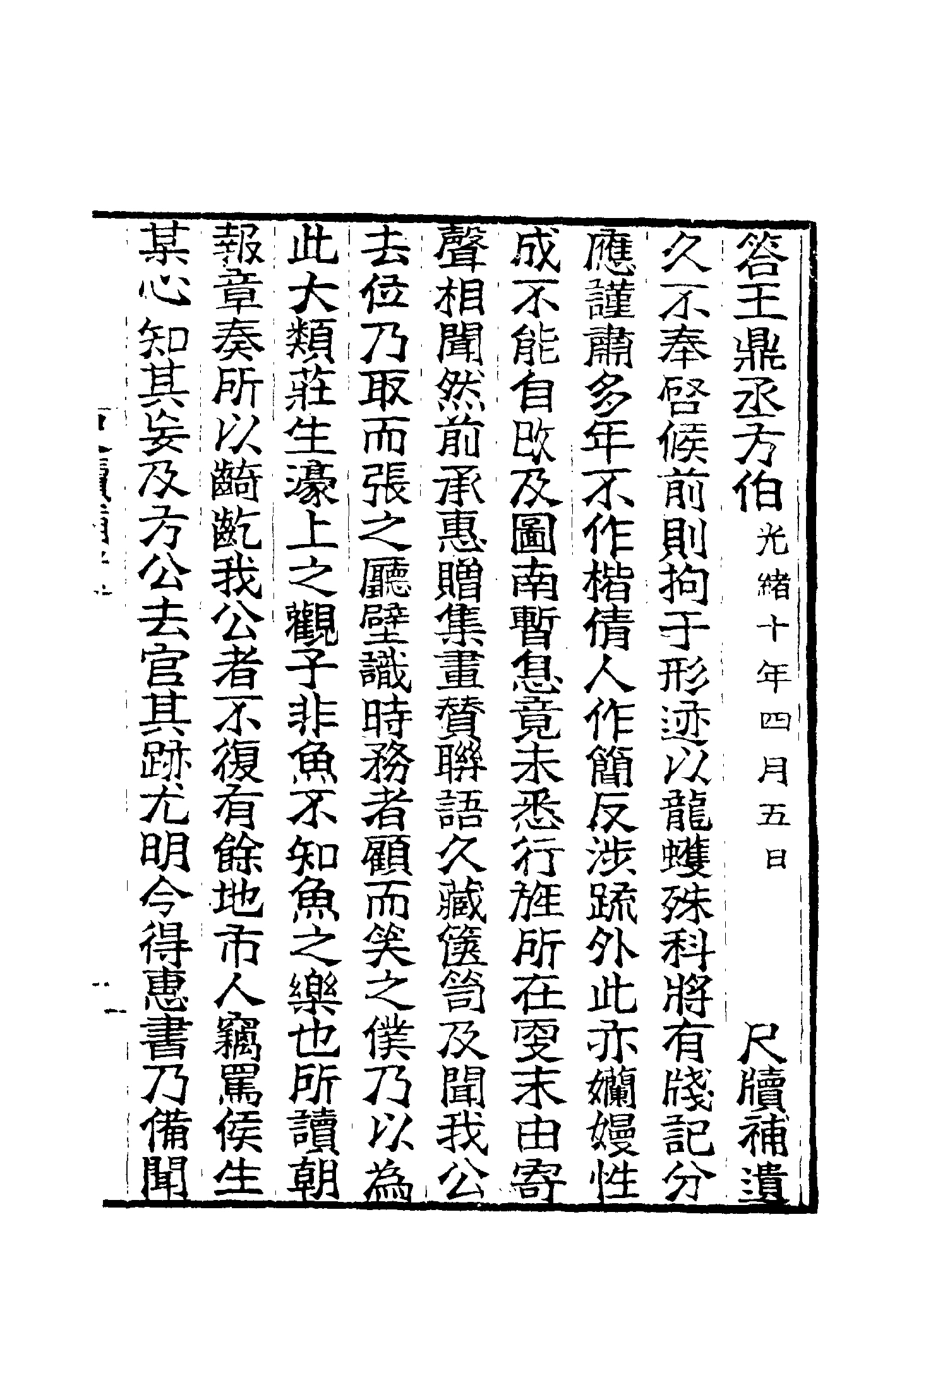 答王鼎丞方伯光緒十年四月五日　尺牘補遺
久不奉啓候前則拘于形迹以龍蠖殊科將有牋記分
應謹肅多年不作楷倩人作簡反涉疏外此亦嬾嫚性
成不能自改及圖南暫息竟未悉行旌所在耎末由寄
聲相聞然前承惠贈集畫贊聯語久藏篋笥及聞我公
去位乃取而張之廳壁識時務者顧而笑之僕乃以為
此大類莊生濠上之觀子非魚不知魚之樂也所讀朝
報章奏所以齮齕我公者不復有餘地市人竊罵侯生
某心知其妄及方公去官其跡尤明今得惠書乃備聞